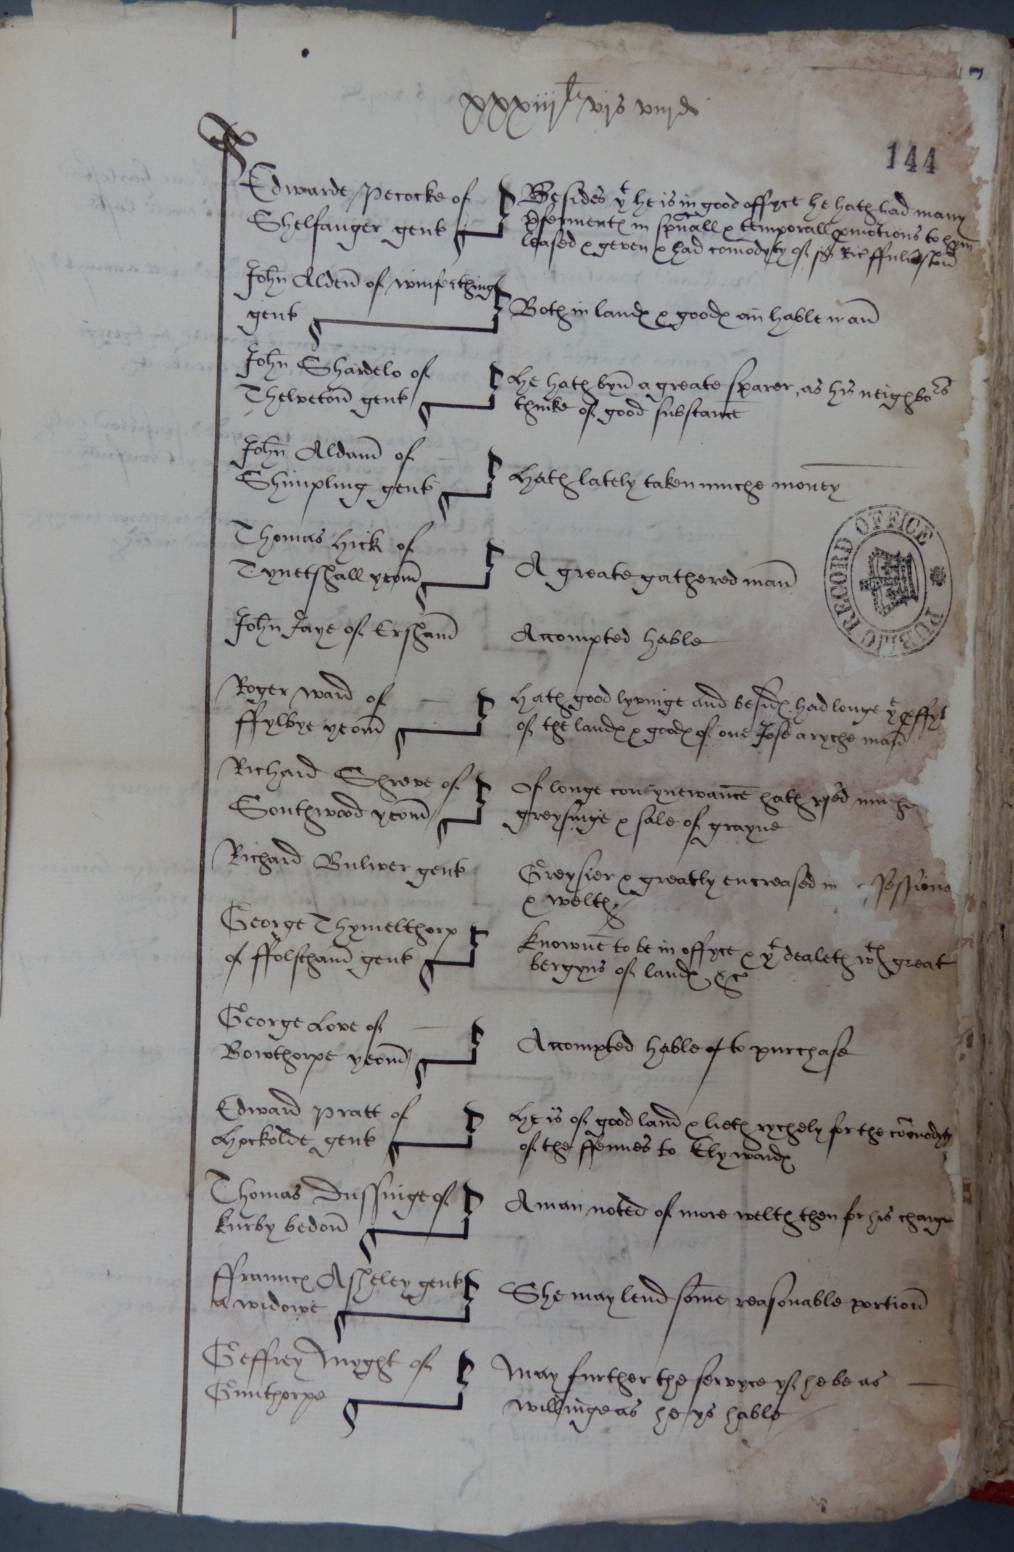 xxxiijli vjs viijd
144
Edwarde Pecocke of
Shelfanger gent
Besides yt he is in good offyce he hath had many
pfermentes in spuall & temporall pmotions to hym
leased & geven & had comodyty of sr Ric ffulmston
John Alden of Winferthing
gent
Both in landes & goodes an hable man
John Shardelo of
Thelveton gent
He hath byn a greate sparer, as his neighbors
thinke of good substance
John Aldam of
Shimpling gent
Hath lately taken muche money
Thomas Hick of
Tynetshall yeom
A greate gathered man
John Jaye of Ersham
Accompted hable
Roger Ward of
ffylbye yeom
Hath good lyvinge and besides had longe ye pffyt
of the landes & goodes of one Jose a ryche man
Richard Shreve of
Southwood yeom
Of longe contynewance hath used muche
greysinge & sale of grayne
Richard Bulwer gent
Greysier & greatly encreased in possessions
& welth
George Thymelthorp
of ffolsham gent
knowne to be in offyce & yt dealeth wth great
bergyns of landes &c
George Love of
Bowthorpe yeom
Accompted hable & to purchase
Edward Pratt of
Hockolde gent
He is of good land & lieth rychely for the comodyty
of the ffennes to Ely wardes
Thomas Dussinge of
kirby bedon
A man noted of more welth then for his charge
ffrances Asheley gent
a widowe
She may lend some reasonable portion
Geffrey Myght of
Gunthorpe
May further the servyce yf he be as
willinge as he ys hable
PUBLIC RECORD OFFICE